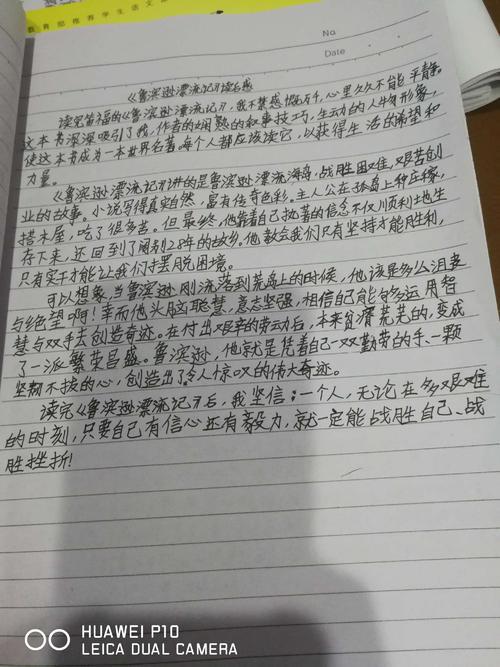 教育部推荐学生语文
No
Date
《鲁滨逊漂流记》读后感
读完笛福的《鲁滨逊漂流记》,我不禁感慨万千,心里久久不能平静。
这本书深深吸引了我,作者的娴熟的叙事技巧,生动的人物形象,
使这本书成为一本世界名著,每个人都应该读它,以获得生活的希望和
力量。
《鲁滨逊漂流记》讲的是鲁滨逊漂流海岛,战胜困难,艰苦创
业的故事。小说写得真实自然,富有传奇色彩。主人公在孤岛上种庄稼,
搭木屋,吃了很多苦。但最终,他靠自己执著的信念不仅顺利地生
存下来,还回到了阔别28年的故乡,他教会我们只有坚持才能胜利,
只有实干才能让我们摆脱困境。
可以想象,当鲁滨逊刚流落到荒岛上的时候,他该是多么沮丧
与绝望啊!幸而他头脑聪慧,意志坚强,相信自己能够多运用智
慧与双手去创造奇迹。在付出艰辛的劳动后,本来贫瘠荒芜的,变成
了一派繁荣昌盛。鲁滨逊,他就是凭着自己一双勤劳的手、一颗
坚韧不拔的心,创造出了令人惊叹的伟大奇迹。
读完《鲁滨逊漂流记》后,我坚信:一个人,无论在多艰难
的时刻,只要自己有信心还有毅力,就一定能战胜自己、战
胜挫折!
HUAWEI P10
LEICA DUAL CAMERA